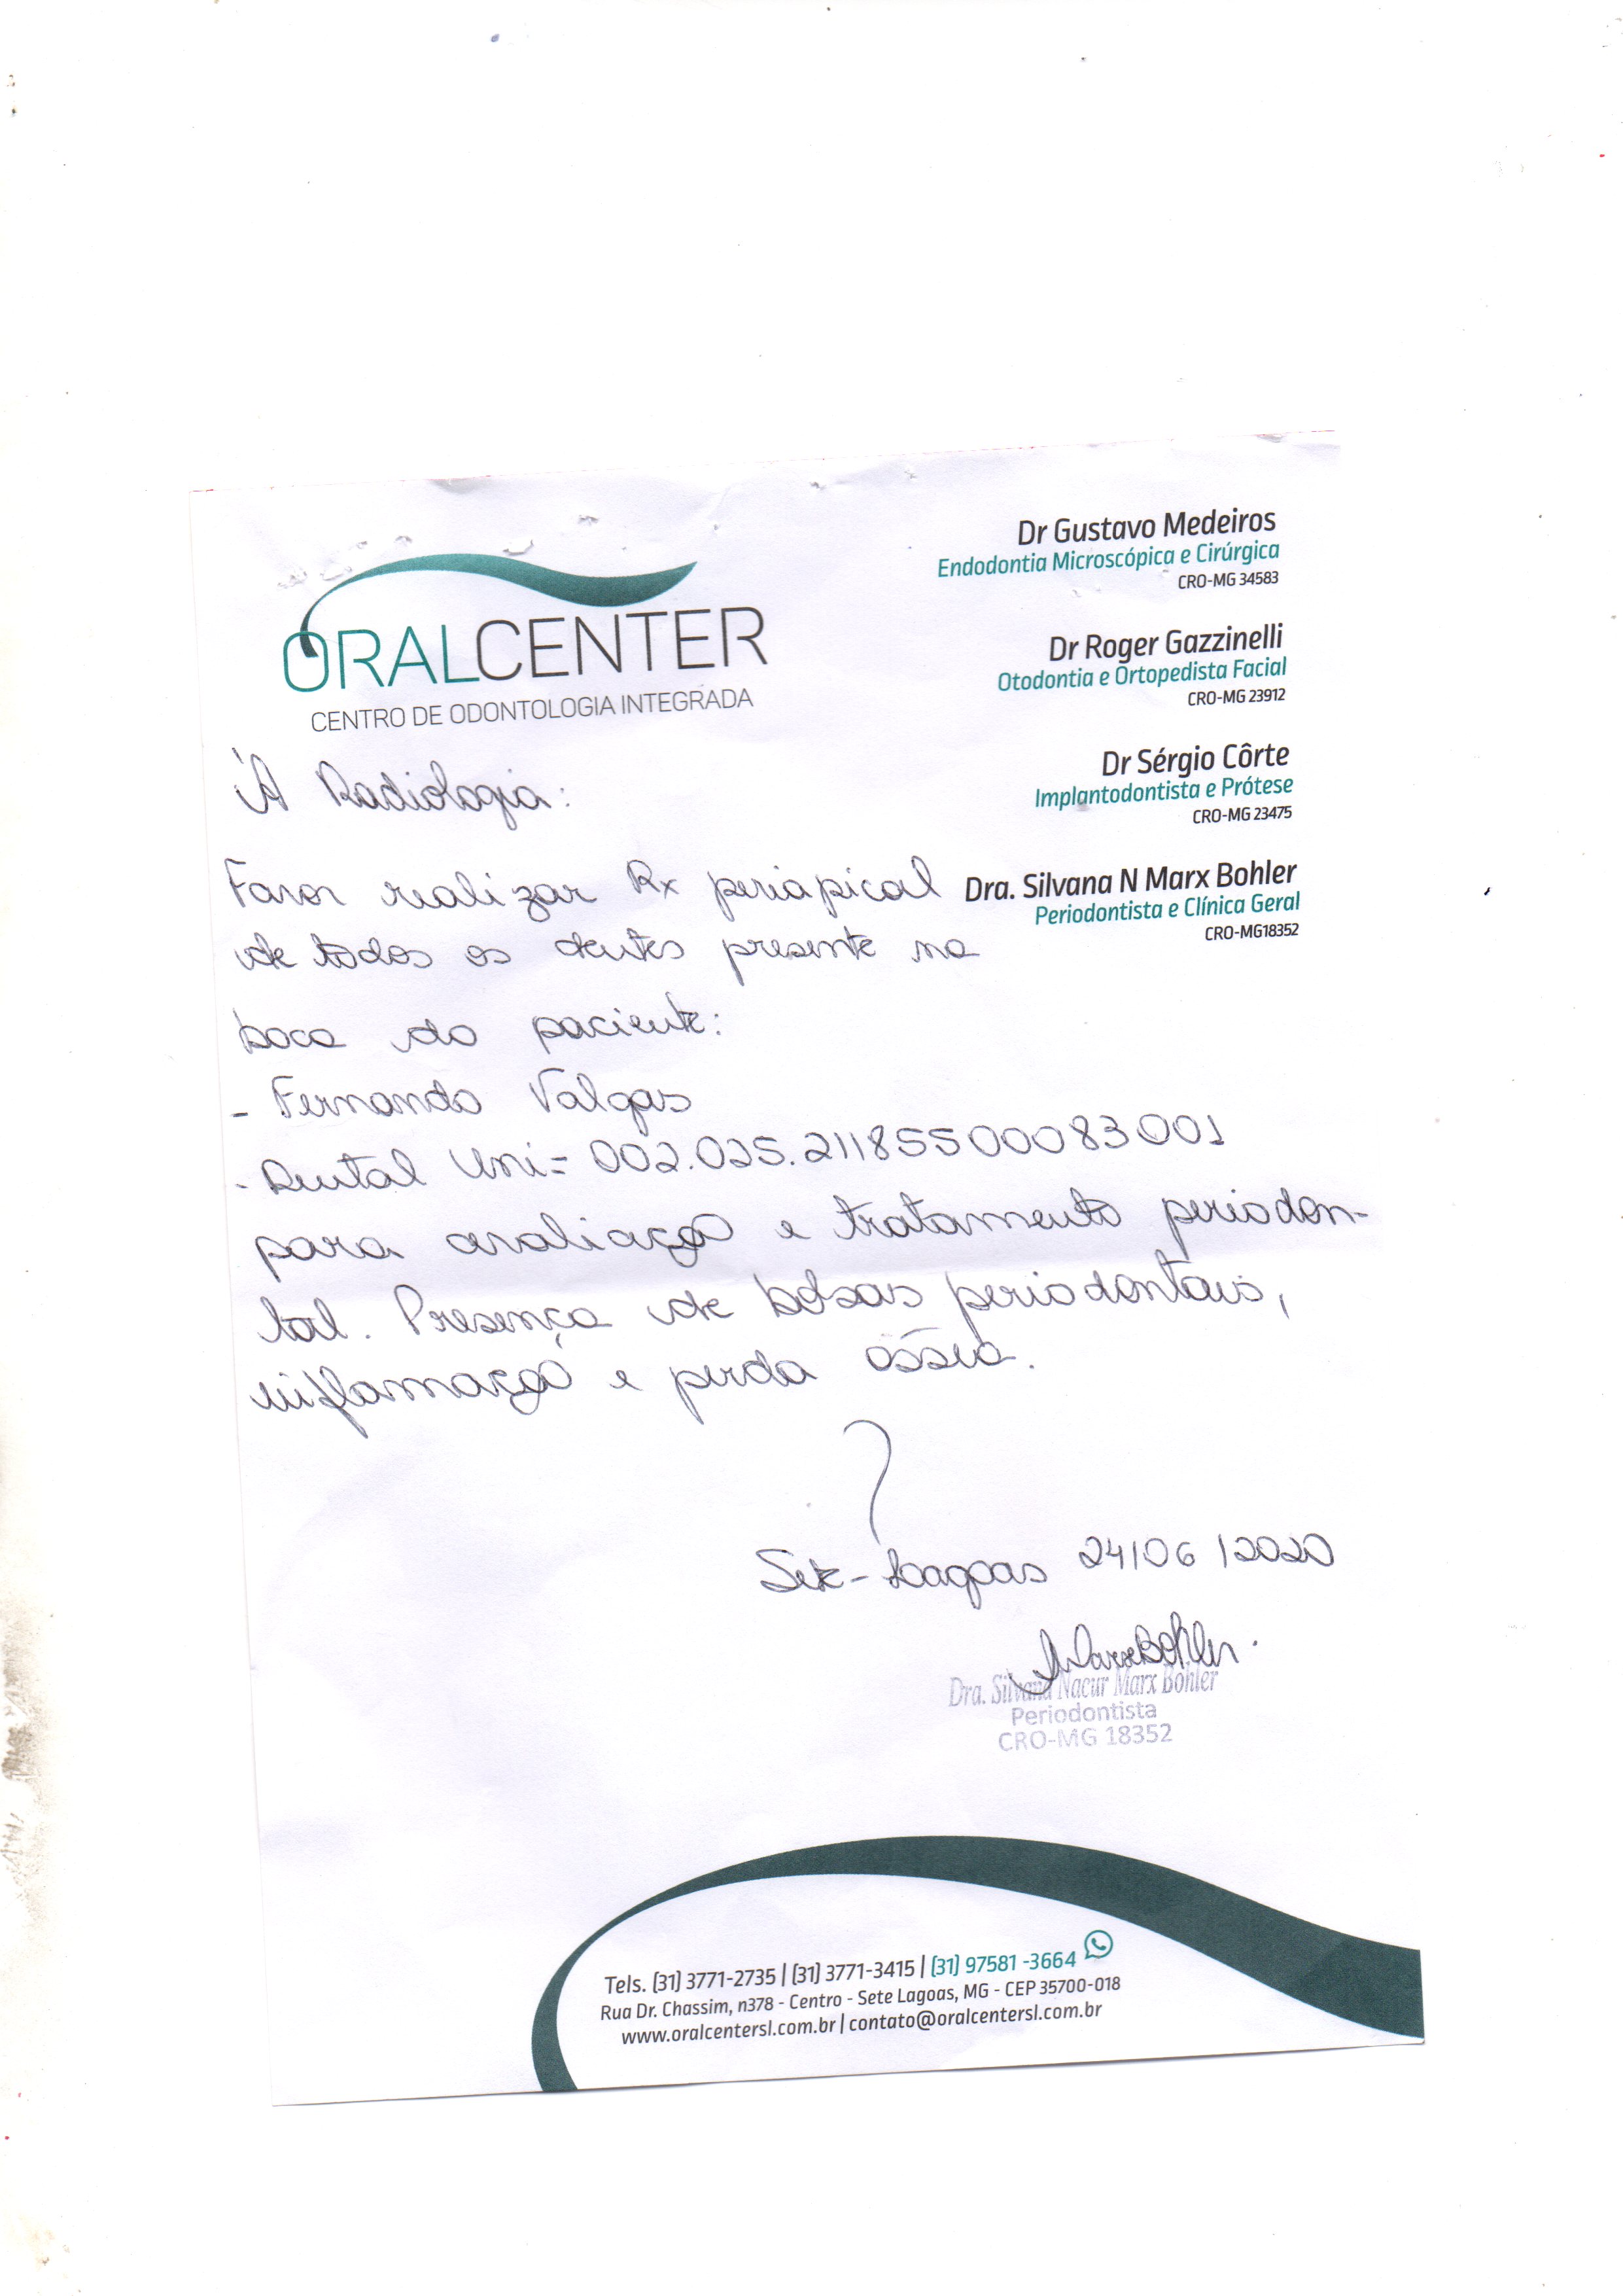 ORALCENTER
CENTRO DE ODONTOLOGIA INTEGRADA
Dr Gustavo Medeiros
Endodontia Microscópica e Cirúrgica
CRO-MG 34583
Dr Roger Gazzinelli
Otodontia e Ortopedista Facial
CRO-MG 23912
Dr Sérgio Côrte
Implantodontista e Prótese
CRO-MG 23475
Dra. Silvana N Marx Bohler
Periodontista e Clínica Geral
CRO-MG18352
À Radiologia:
Favor realizar Rx periapical
de todos os dentes presente na
boca do paciente:
- Fernando Valgas
- Dental Uni = 002.025.21185500083001
para avaliação e tratamento periodon-
tal. Presença de bolsas periodontais,
inflamação e perda óssea.
Sete-Lagoas 24/06/2020
MarxBohler.
Dra. Silvana Nacur Marx Bohler
Periodontista
CRO-MG 18352
Tels. (31) 3771-2735 | (31) 3771-3415 | (31) 97581-3664
Rua Dr. Chassim, n378 - Centro - Sete Lagoas, MG - CEP 35700-018
www.oralcentersl.com.br | contato@oralcentersl.com.br